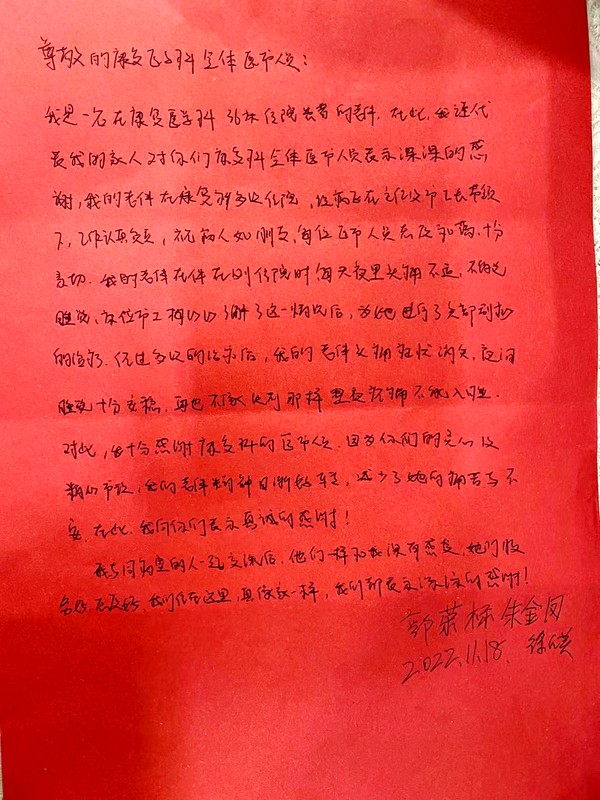 尊敬的康复医学科全体医护人员:
我是一名在康复医学科36床住院患者的老伴,在此,我谨代
表我的家人对你们康复科全体医护人员表示深深的感
谢,我的老伴在康复科多次住院,
下,工作认真负责,视病人如朋友,每位医护人员态度和蔼,十分
亲切.我的老伴在住院时每天夜里头痛不适,不能
睡觉、床位了解了这一情况后,为她进行了头部
的治疗.经过多次的治疗后,我的老伴头痛症状消失,夜间
睡觉十分安稳,再也不像以前那样整夜头痛不能入睡.
对此,我十分感谢康复科的医护人员.因为你们的关心及
精心,我的老伴精神日渐好转,减少了她的痛苦与不
安.在此.我向你们表示真诚的感谢!
我与同病室的人一起交流后.他们一样和我深有感受,她们
态度好 我们住在这里,真像家一样,我们都表示深深的感谢!
郭荣标 朱金凤
2022.11.18. 徐